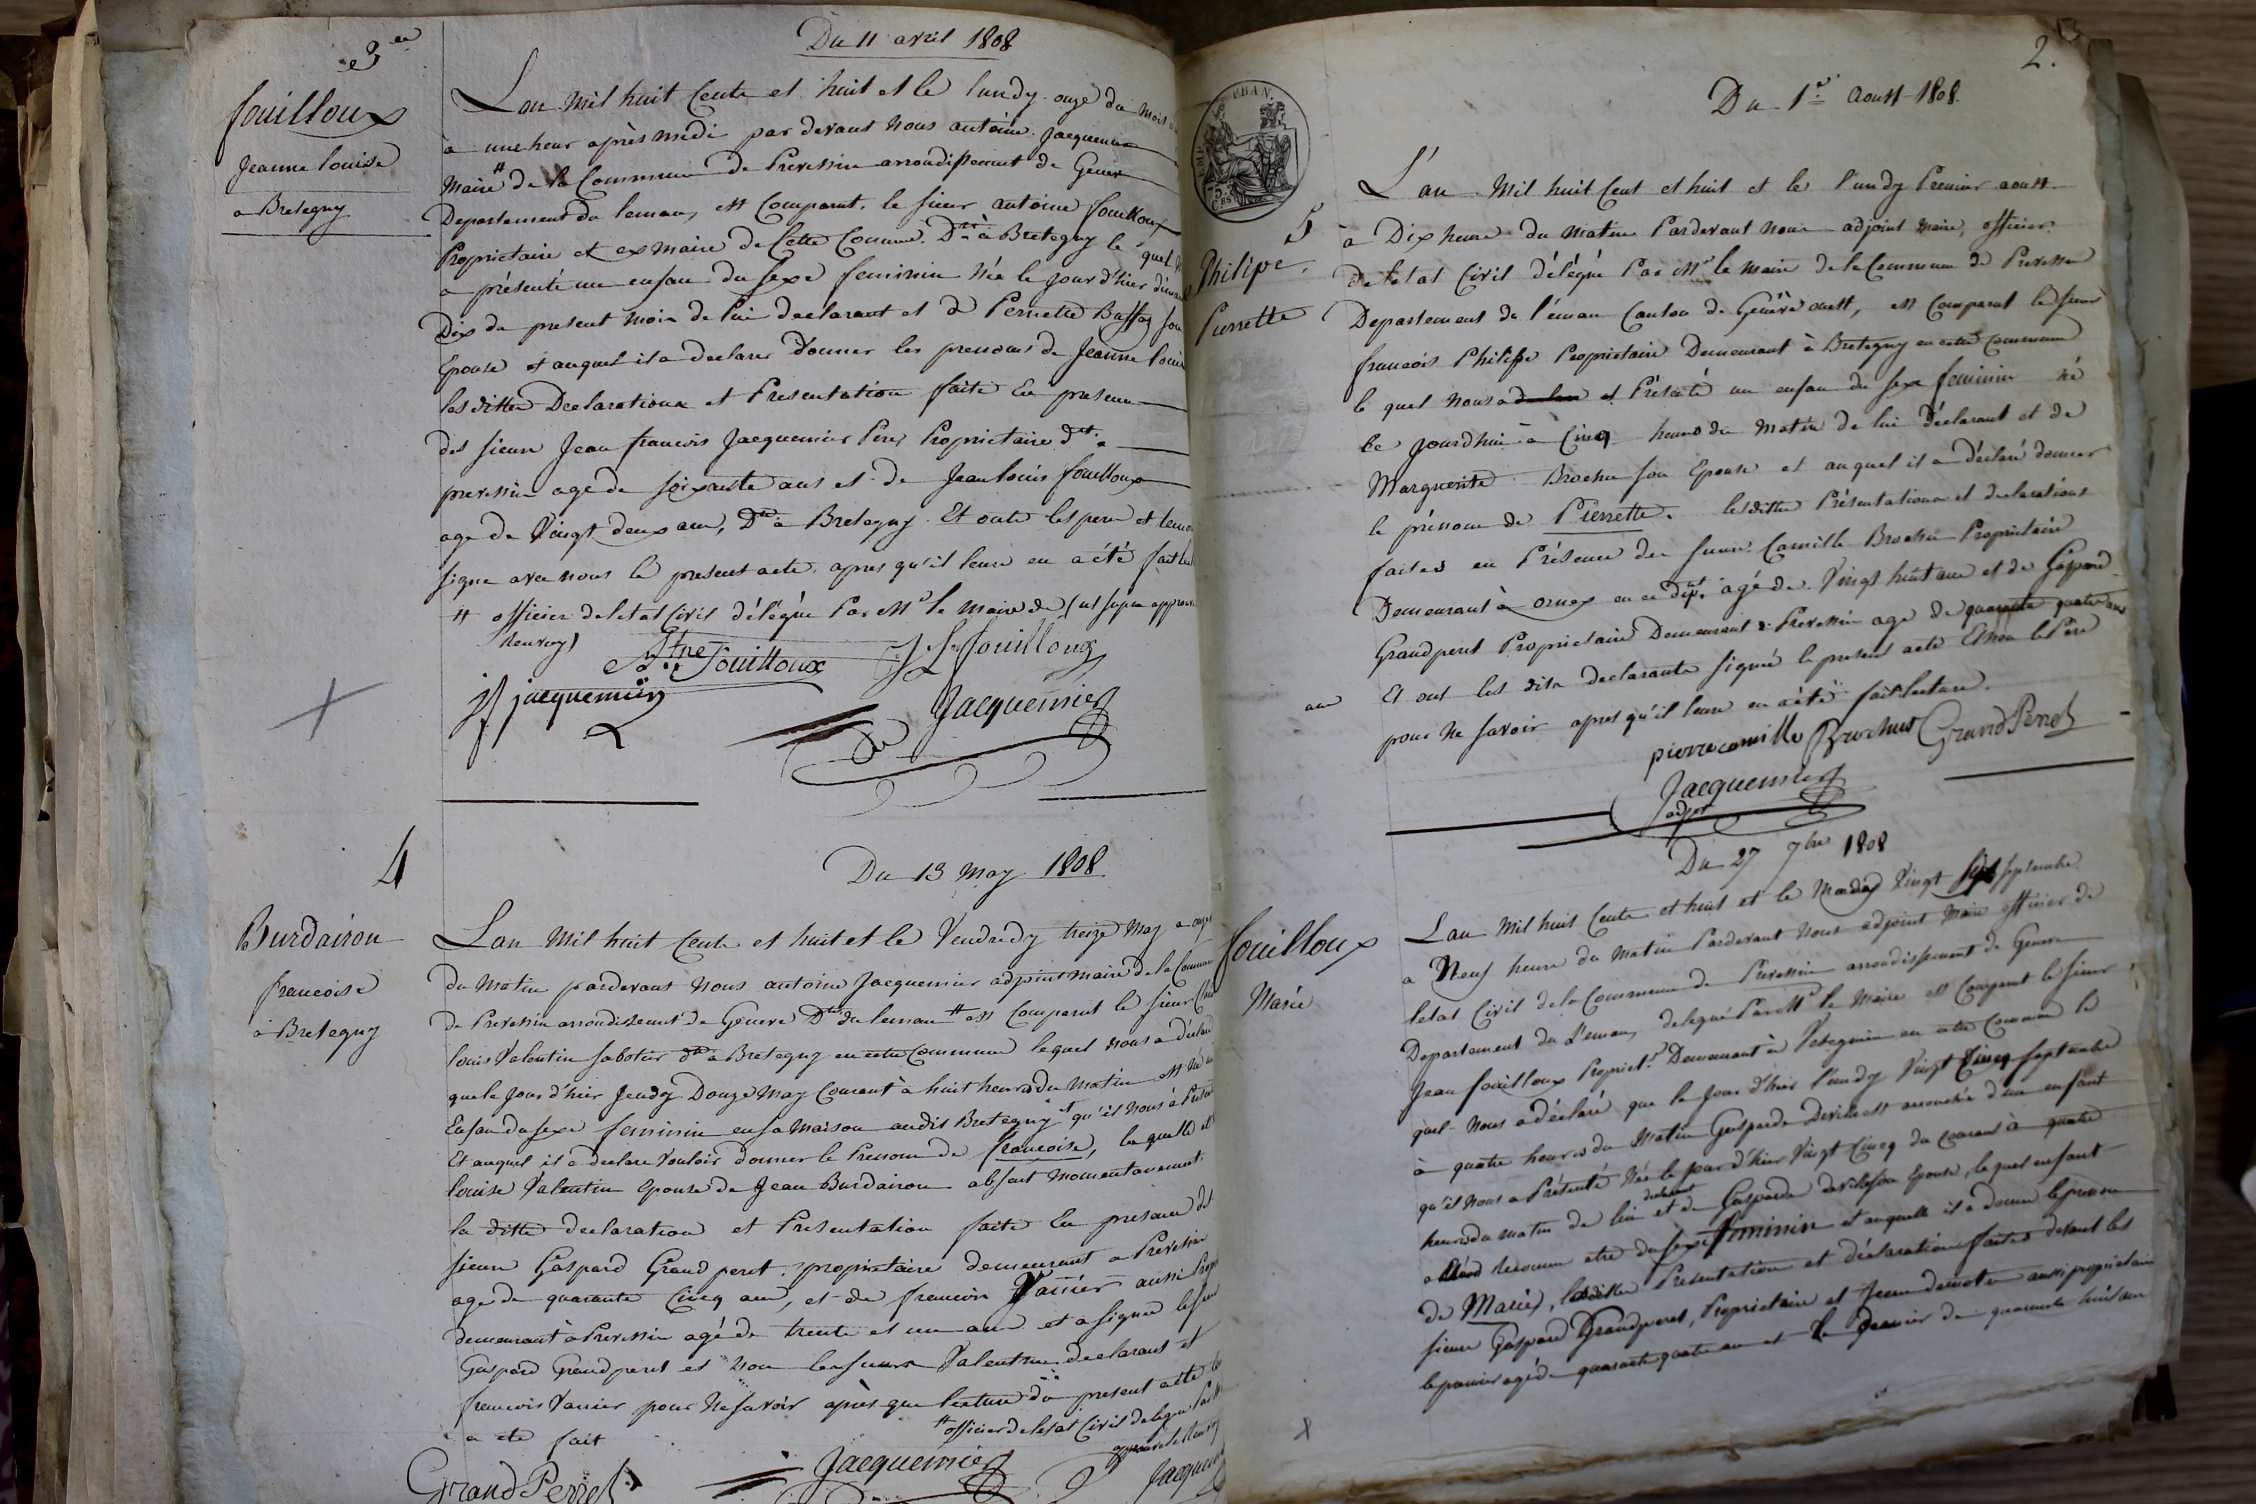 3en
fouilloux
Jeanne louise
a Bretegny
Du 11 avril 1808
Lan Mil huit Cents et huit et le lundy onze du mois
à une heur après midi par devant Nous antoine Jacquemier
Maire # de la Commune de Prevessin arrondissement de Geneve
Departement du leman, est Comparut le sieur antoine fouilloux
Proprietaire et ex maire de Cette Commune Dnt à Bretegny le quel
a présenté un enfan du sexe feminin Née le jour d'hier
Dix du present mois de lui declarant et de Pernette Baffay son
Epouse et auquel il a declarer donner les prenoms de Jeanne louise
lesditte Declarations et Presentation faite En presence
des sieurs Jean francois Jacquemier Pere Proprietaire dnt a
prevessin age de soixante ans et de Jean louis fouilloux
age de Vingt deux ans, Dnt à Bretegny. Et onte les pere et temoins
signe avec nous le present acte, apres qu'il leure en a été fait
# officier de letat Civil délégue Par Mr le Maire de (ut supra approuvé
Renvoy)
Atne fouilloux J L fouilloux
jf jacquemier
Jacquemier
4
Burdairon
francoise
à Bretegny
Du 13 May 1808
Lan Mil huit Cents et huit et le Vendredy treize May a onze
du Matin pardevant Nous antoine Jacquemier adjoint maire de la Commune
de Prevessin arrondissement de Geneve Dnt du leman # est Comparut le sieur
louis Valentin sabotier dnt à Bretegny en cette Commune lequel nous a déclaré
que le jour d'hier Jeudy Douze May Courant à huit heures du Matin est né un
Enfan du sexe feminin en sa Maison audit Bretegny et qu'il nous à
Et auquel il a declare Vouloir donner le Prenom de francoise, la quelle
louise Valentin epouse de Jean Burdairon absent momentanement
la ditte declaration et Presentation faite En presence des
sieurs Gaspard Grand peret, proprietaire demeurant a Prevessin
age de quarante Cincq ans, et de francois Vanier aussi
demeurant à Prevessin agé de trente et un ans et a signe le sieur
Gaspard Grandperet et non le sieurs Valentin declarant et
francois Vanier pour Ne savoir après que lecture du present acte
a ete fait
# officier de letat Civil delegue Par
approuvé le Renvoy
Grand Perret
Jacquemier
2.
Du 1er aoust 1808
L'an Mil huit Cent et huit et le lundy Premier aoust
5
Philipe
Pierrette
à Dix heure du Matin Pardevant Nous adjoint Maire, officier
de letat Civil délégué Par Mr le Maire de la Commune de Prevessin
Departement du léman Canton de Genêve ouest, est Comparut le sieur
francois Philippe Proprietaire Demeurant à Bretegny en cette Commune
le quel Nous a et Présenté un enfan du sexe feminin né
le jourdhui à Cincq heures du Matin de lui déclarant et de
Marguerite Brochu son Epouse et auquel il a déclaré donner
le prénom de Pierrette. lesditte Présentations et declarations
faites en Présence des sieurs Camille Brochu Proprietaire
Demeurant à ornex en ce Dept. agé de Vingt huit ans et de Gaspard
Grandperet Proprietaire Demeurant à Prevessin age de quarante quatre ans
Et ont les dits declarants signés le present acte Et non le Pere
pour Ne savoir apres qu'il leure en a été fait lecture.
pierre camille Brochut Grand Perret
Jacquemier
adjt
fouilloux
Marie
Du 27 7bre 1808
Lan Mil huit Cents et huit et le Mardy Vingt sept septembre
a Neuf heure du Matin Pardevant Nous adjoint Maire officier de
letat Civil de la Commune de Prevessin arrondissement de Geneve
Departement du Leman, delegué Par Mr le Maire est Comparut le sieur
Jean fouilloux Propriet.r Demeurant à Vesegnin en cette Commune le
quel Nous a déclaré que le Jour d'hier lundy Vingt Cincq septembre
à quatre heures du Matin Gasparde est accouchée d'un enfant
qu'il Nous a Présenté Née le jour d'hier Vingt Cincq du Courant à quatre
heures du matin de lui declarant et de Gasparde son Epouse, lequel enfant
a été reconnu etre du sexe feminin et auquelle il a donner le prenom
de Marie, lesditte Presentation et déclaration faites devant les
sieurs Gaspard Grandperet, Proprietaire et Jean aussi proprietaire
le premier agé de quarante quatre ans et le dernier de quarante huit ans